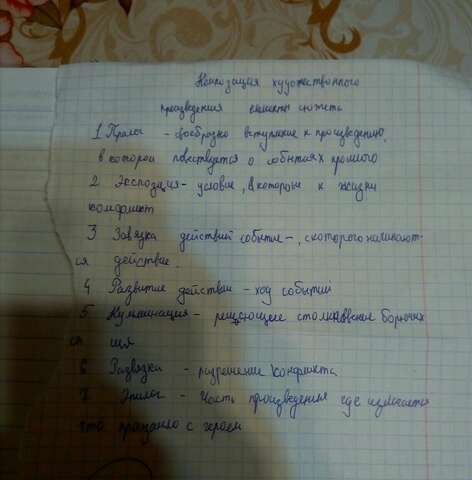 Композиция художественного
произведения сюжета
1 Пролог - своеобразно вступление к произведению,
в которой повествуется о событиях прошлого
2 Экспозиция - условие, в которые к жизни
конфликт
3 Завязка действий событие -, с которого начинают-
ся действие.
4 Развитие действии - ход событии
5 Кульминация - решающее столкновение борющих
ся
6 Развязка - разрешение конфликта
7 Эпилог - часть произведения где излагается
что с героем